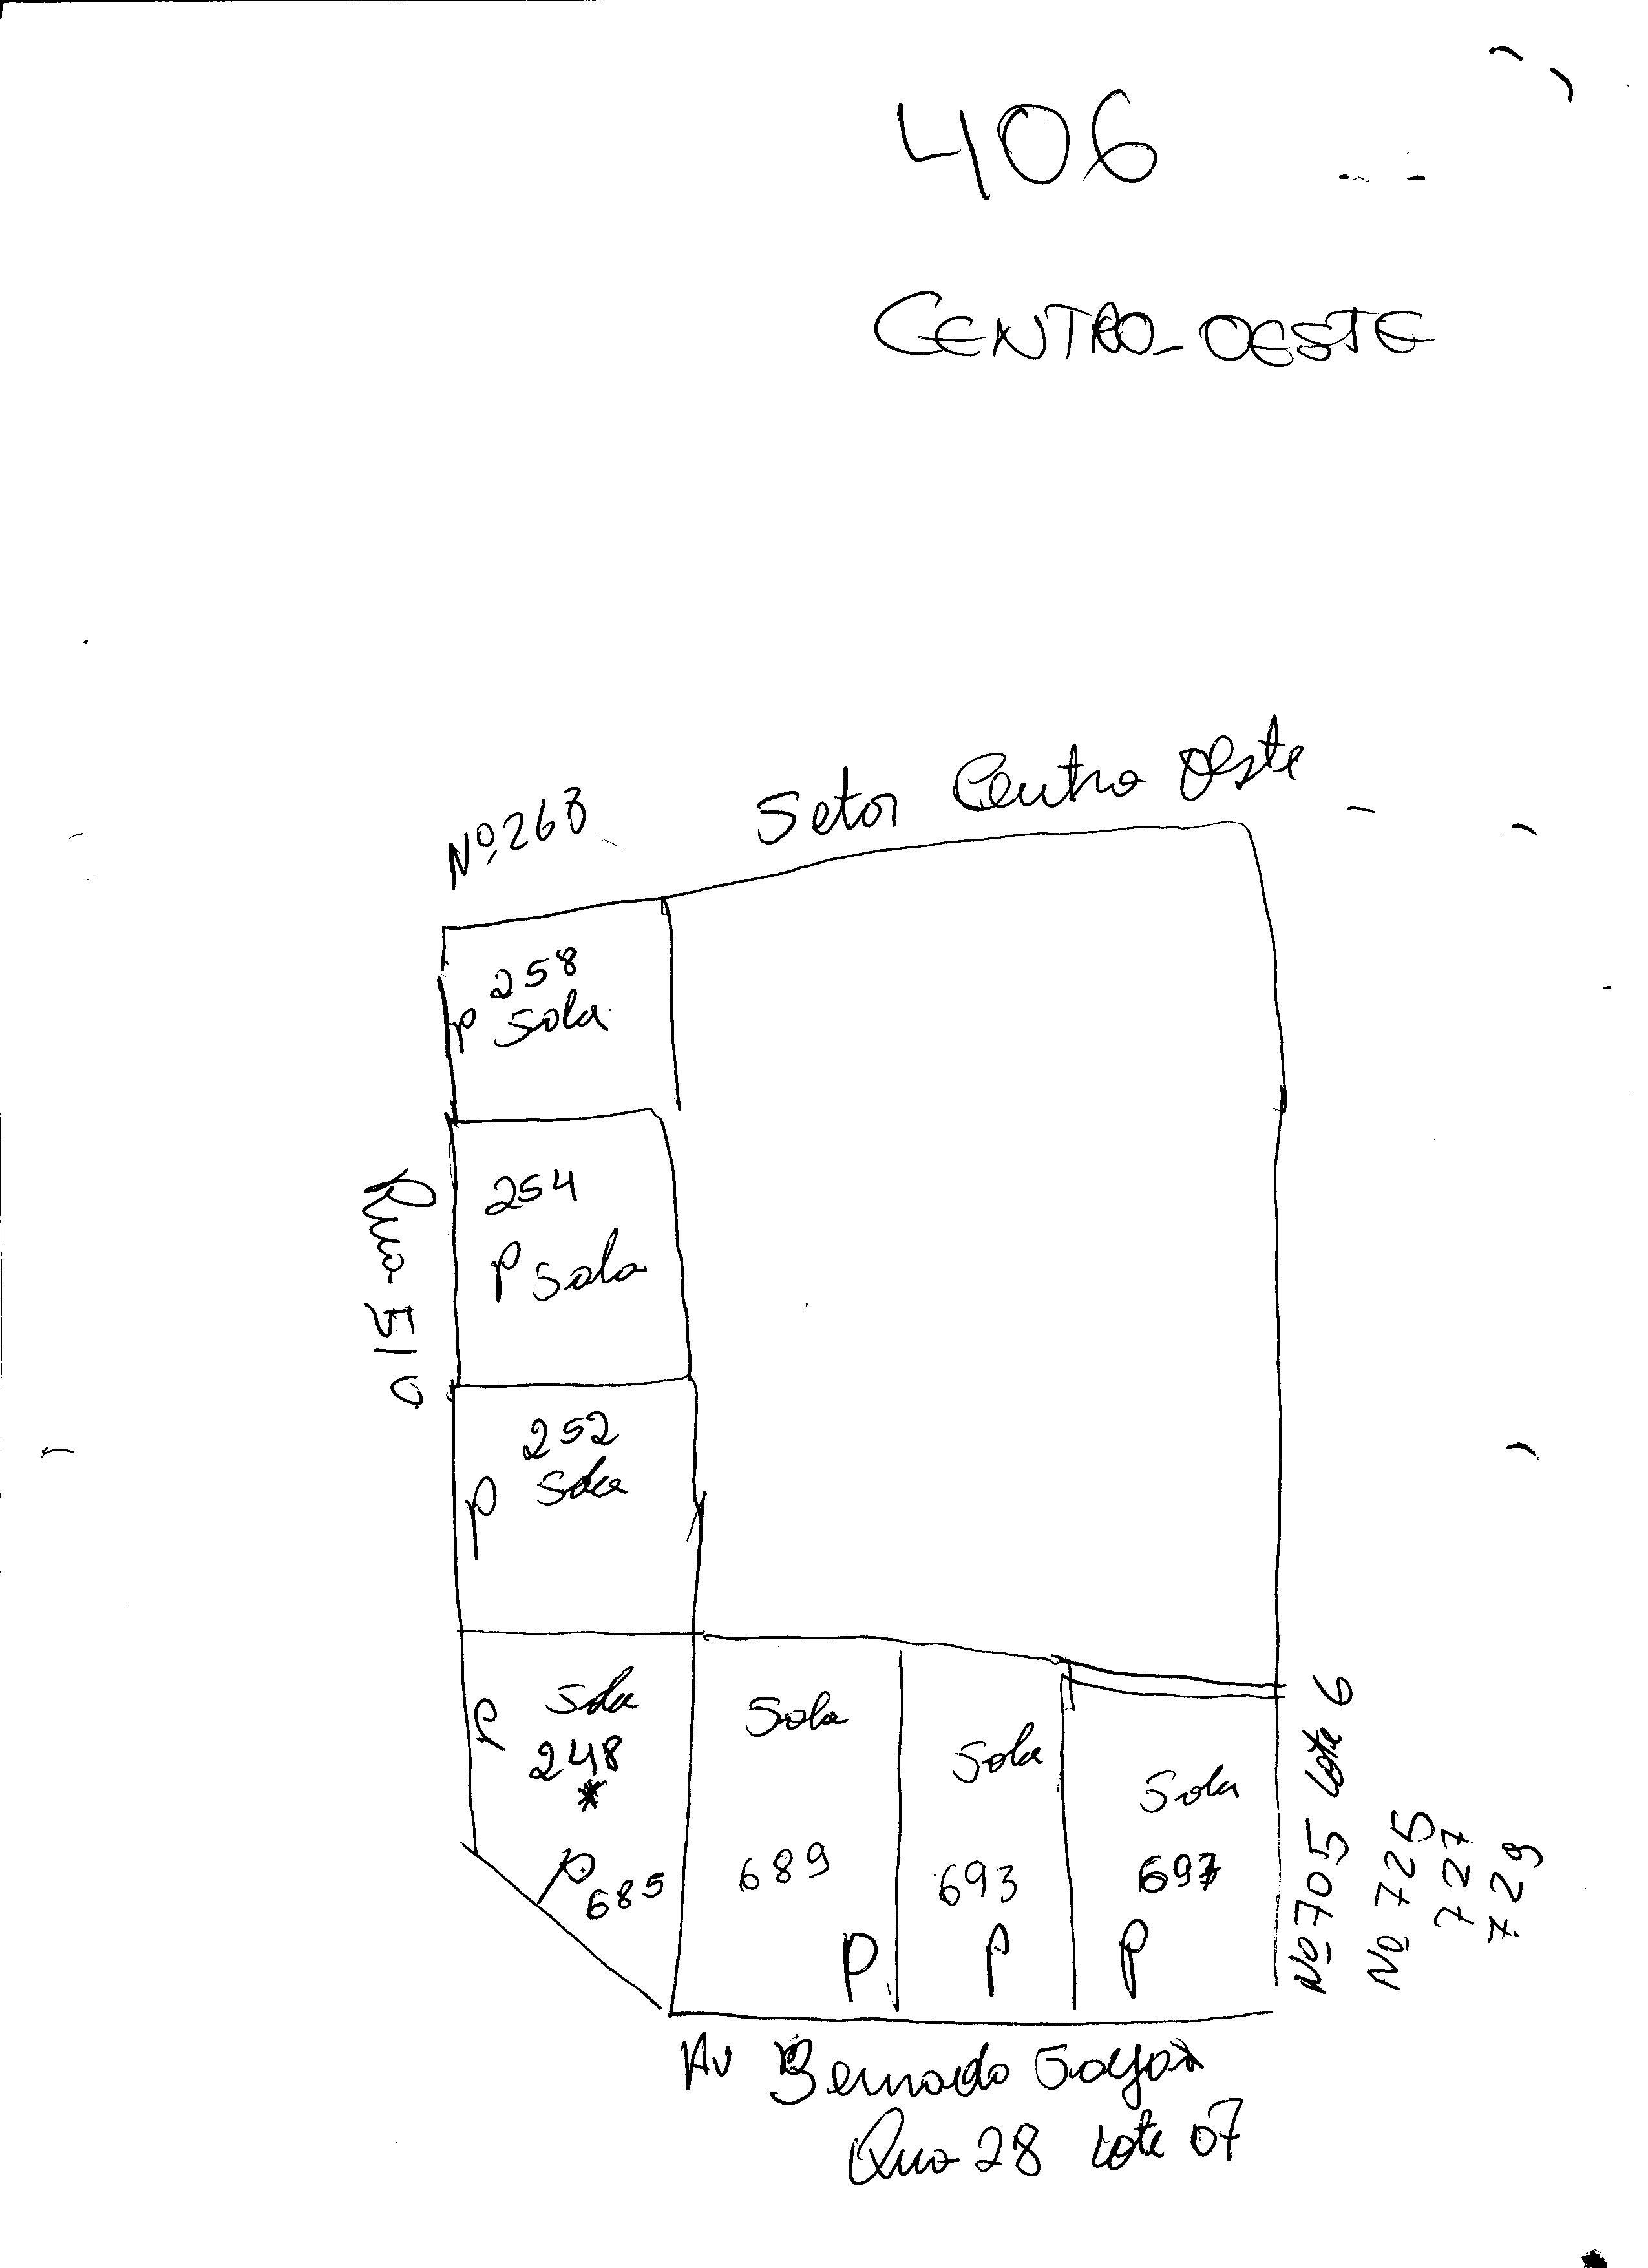 406
CENTRO-OESTE
Setor Centro Oeste
Nº 268
258
P Sala
Rua 510
254
P Sala
252
P Sala
P Sala
248
*
P 685
Sala
689
P
Sala
693
P
Sala
697
P
Nº 705 Lote 6
Nº 725
727
729
Av Bernardo Sayão
Qua 28 Lote 07